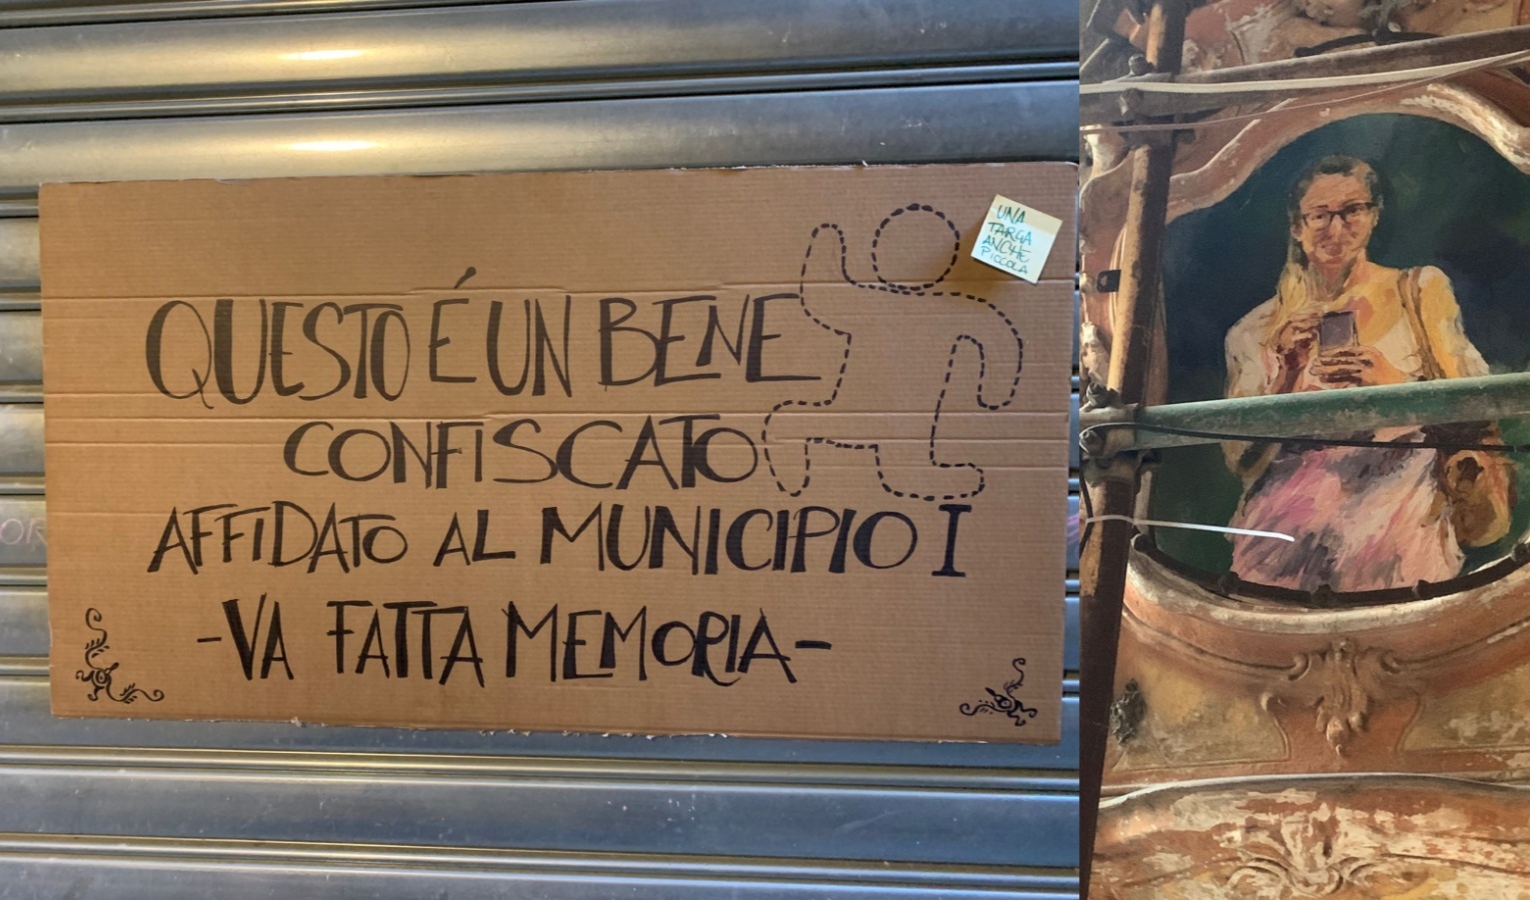 QUESTO É UN BENE
CONFISCATO
AFFIDATO AL MUNICIPIO I
-VA FATTA MEMORIA-
UNA
TARGA
ANCHE
PICCOLA